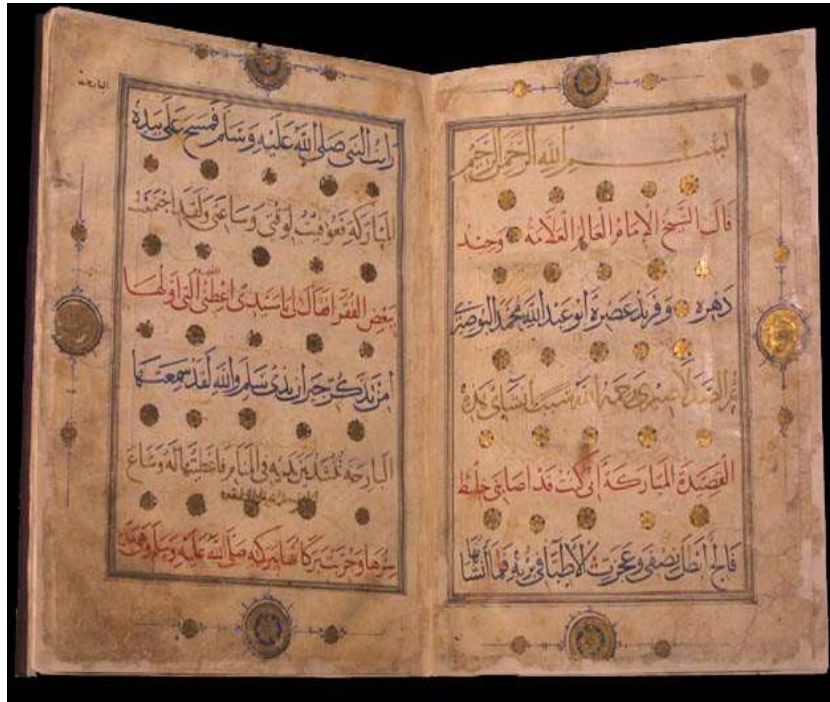 بسم الله الرحمن الرحيم
قال الشيخ الإمام العالم العلامه وحيد
دهره وفريد عصره أبو عبد الله محمد البوصيرى
رحمة الله سبب انشائى هذه
القصيدة المباركة أنى كنت قد أصابنى خلط
فالج أبطل نصفى وعجزت الأطبا فى برئه فلما أنشاتها
رأيت النبى صلى الله عليه وسلم فمسح على بيده
المباركة فعوفيت لوقتى وساعتى ولقد اجتمعت
ببعض الفقرا فقال يا سيدى أعطنى التى أولها
أمن تذكر جيران بذى سلم والله لقد سمعتها
البارحة تنشد بين يديه فى المنام فأعطيتها له وشاع
سرها وجربت بركاتها ببركته صلى الله عليه وسلم
البارحة